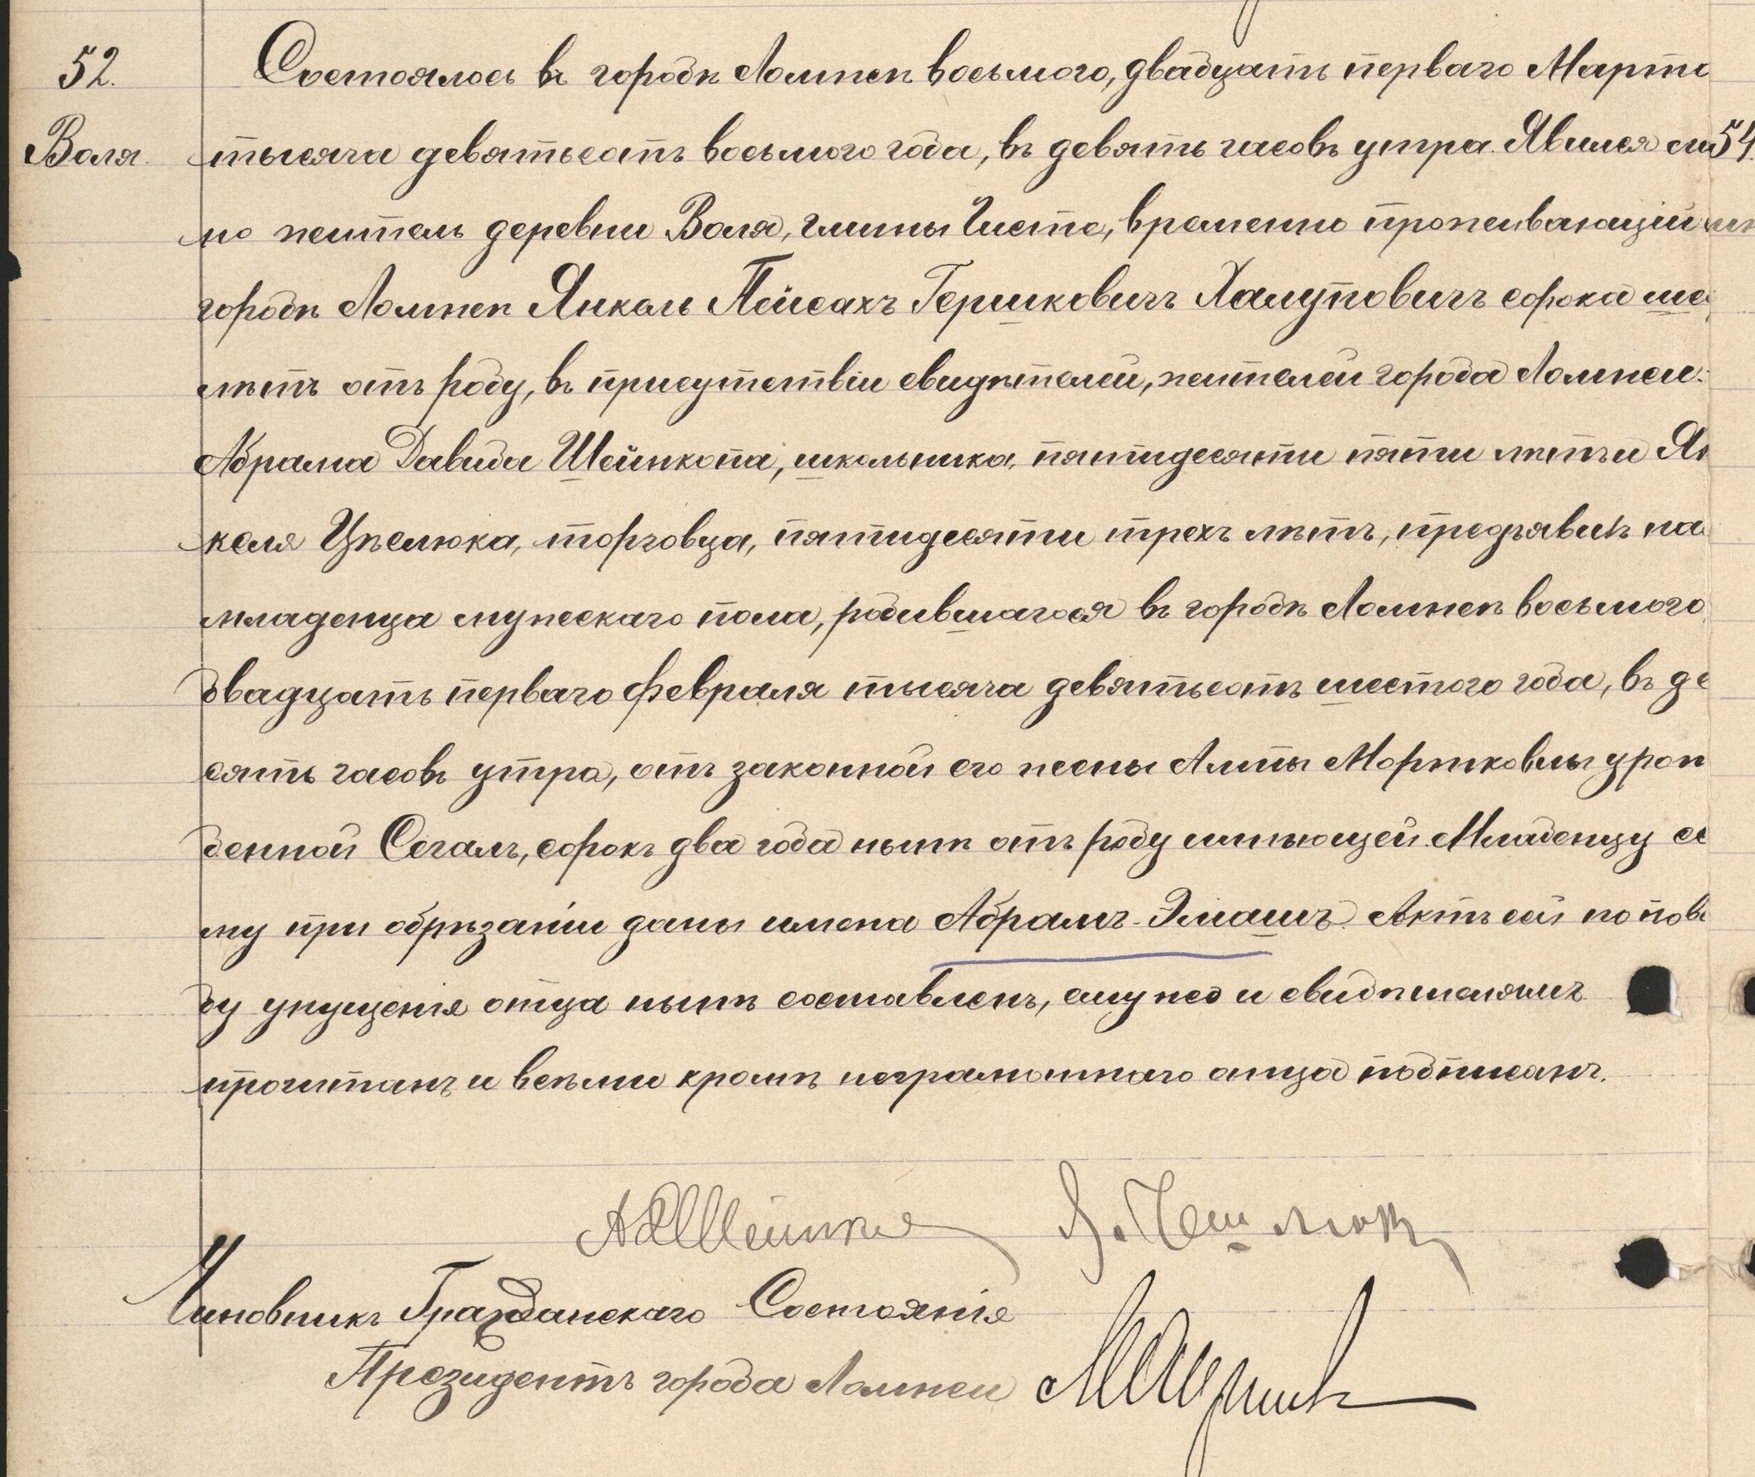 52.
Воля.
Состоялось въ городѣ Ломжѣ восьмого, двадцать перваго Марта
тысяча девятьсотъ восьмого года, въ девять часовъ утра. Явился
54
но житель деревни Воля, гмины Чисте, временно проживающій
городѣ Ломжѣ Янкель Пейсахъ Гершковичъ Халуповичъ сорока
лѣтъ отъ роду, въ присутствіи свидѣтелей, жителей города Ломжи:
Абрама Давида Шейнкопа, школьника, пятидесяти пяти лѣтъ и Ян
келя Цѣслюка, торговца, пятидесяти трехъ лѣтъ, предъявилъ на
младенца мужескаго пола, родившагося въ городѣ Ломжѣ восьмого,
двадцать перваго Февраля тысяча девятьсотъ шестого года, въ де
сять часовъ утра, отъ законной его жены Алты Мортковны урож
денной Сегалъ, сорокъ два года нынѣ отъ роду имѣющей. Младенцу се
му при обрѣзаніи даны имена Абрамъ-Эліашъ. Актъ сей по пово
ду упущенія отца нынѣ составленъ, ему же и свидѣтелямъ
прочитанъ и всѣми кромѣ неграмотнаго отца подписанъ.
Чиновникъ Гражданскаго Состоянія
Президентъ города Ломжи